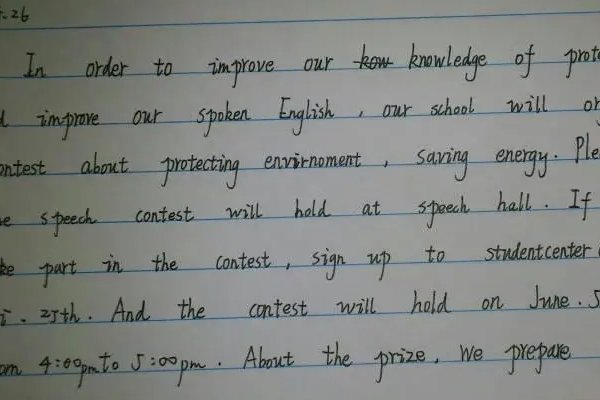 26
In order to improve our kow knowledge of
improve our spoken English, our school will
about protecting envirnoment, saving energy.
speech contest will hold at speech hall. If
part in the contest, sign up to studentcenter
25th. And the contest will hold on June. 5
4:00pm to 5:00pm. About the prize, We prepare